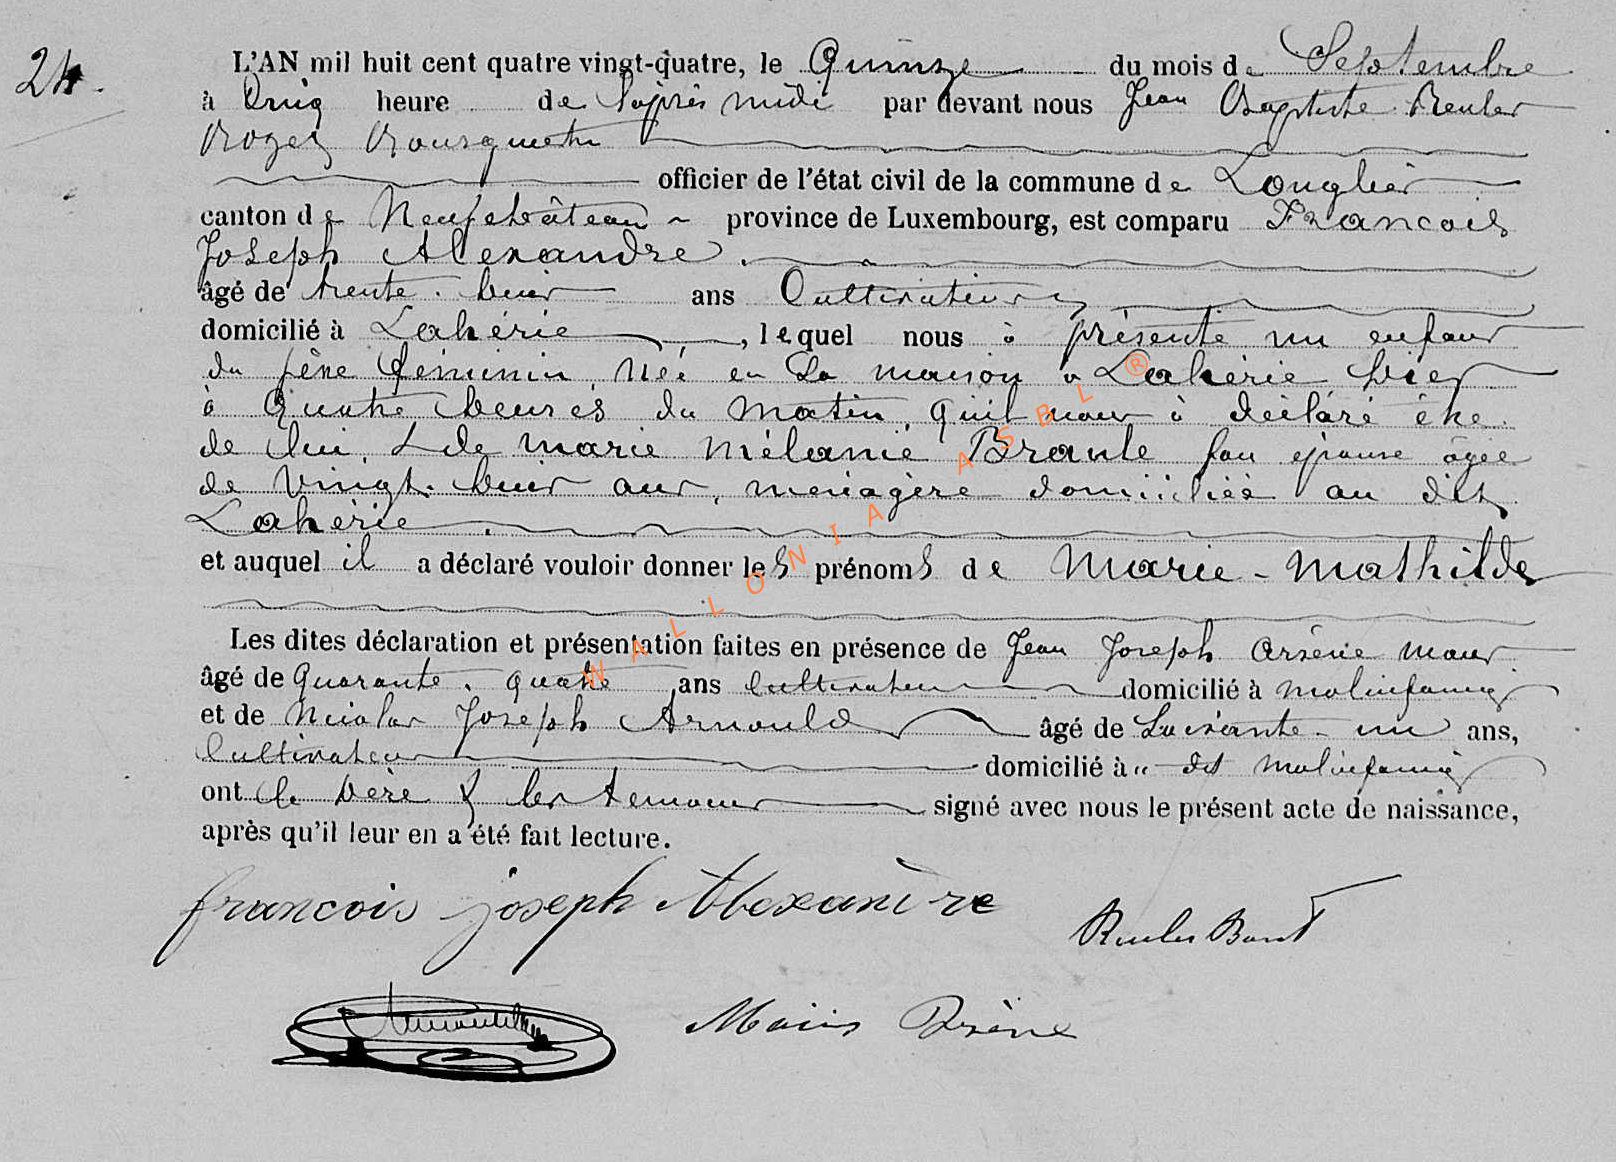 24.
L'AN mil huit cent quatre vingt-quatre, le Quinze du mois de Septembre
à Cinq heure de l'après midi par devant nous Jean Baptiste Reuler
officier de l'état civil de la commune de Longlier
canton de Neufchâteau province de Luxembourg, est comparu Francois
Joseph Alexandre
âgé de trente-huit ans Cultivateur
domicilié à Lahérie, lequel nous à présenté un enfant
du sèxe féminin, née en sa maison à Lahérie hier
à quatre heures du matin, qu'il nous à déclaré être
de lui, & de marie mélanie Braule son épouse âgée
de Vingt-huit ans, ménagère domiciliée au dit
Lahérie
et auquel il a déclaré vouloir donner les prénoms de Marie-Mathilde
Les dites déclaration et présentation faites en présence de Jean Joseph Arsène
âgé de Quarante-quatre ans Cultivateur domicilié à molinfaing
et de Nicolas Joseph Arnould âgé de Soixante-un ans,
Cultivateur domicilié à dit molinfaing
ont le père & les témoins signé avec nous le présent acte de naissance,
après qu'il leur en a été fait lecture.
francois joseph Alexandre
Arsène
WALLONIA ASBL ®